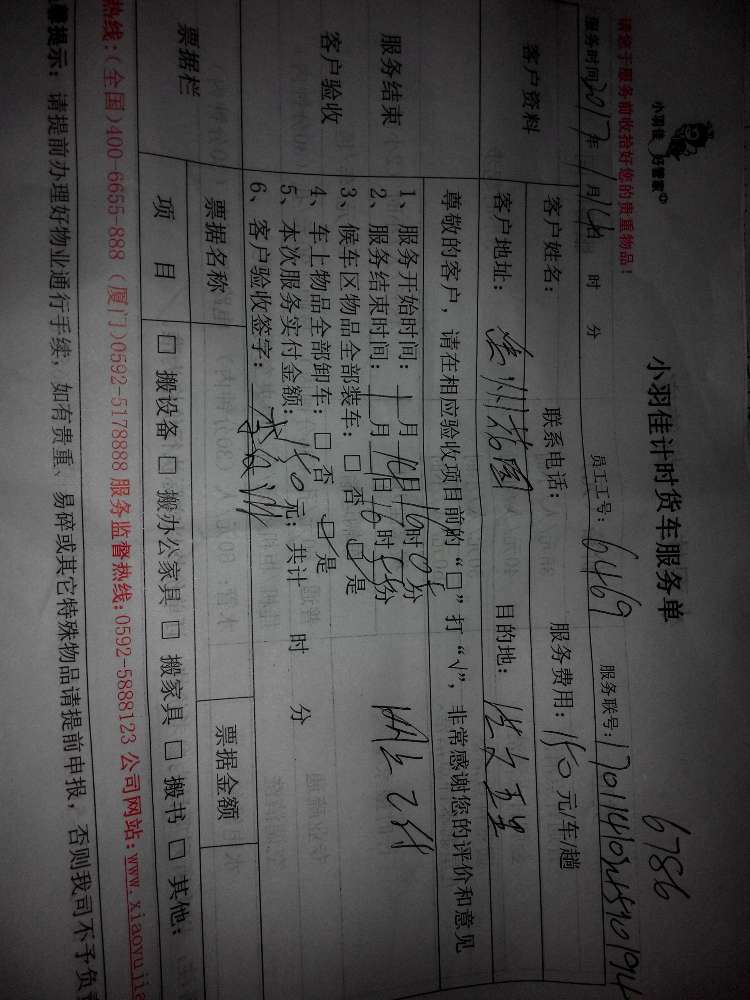 小羽佳 好管家
小羽佳计时货车服务单
6786
请您于服务前收拾好您的贵重物品！
服务时间2017年1月14日 时 分 员工工号：6469 服务联号：
客户资料
客户姓名： 联系电话： 服务费用：150元/车/趟
客户地址： 花园 目的地：
服务结束
客户验收
尊敬的客户，请在相应验收项目前的“口”打“√”，非常感谢您的评价和意见
1、服务开始时间：1月14日16时05分
2、服务结束时间：1月14日16时55分
3、候车区物品全部装车：□ 否 ☑ 是
4、车上物品全部卸车：□ 否 ☑ 是
5、本次服务实付金额：150元；共计 时 分
6、客户验收签字：
票据栏
票据名称 票据金额
项 目 □ 搬设备 □ 搬办公家具 □ 搬家具 □ 搬书 □ 其他：
热线：（全国）400-6655-888（厦门）0592-5178888 服务监督热线：0592-5888123 公司网站：www.xiaoyujia
提示：请提前办理好物业通行手续，如有贵重、易碎或其它特殊物品请提前申报，否则我司不予负